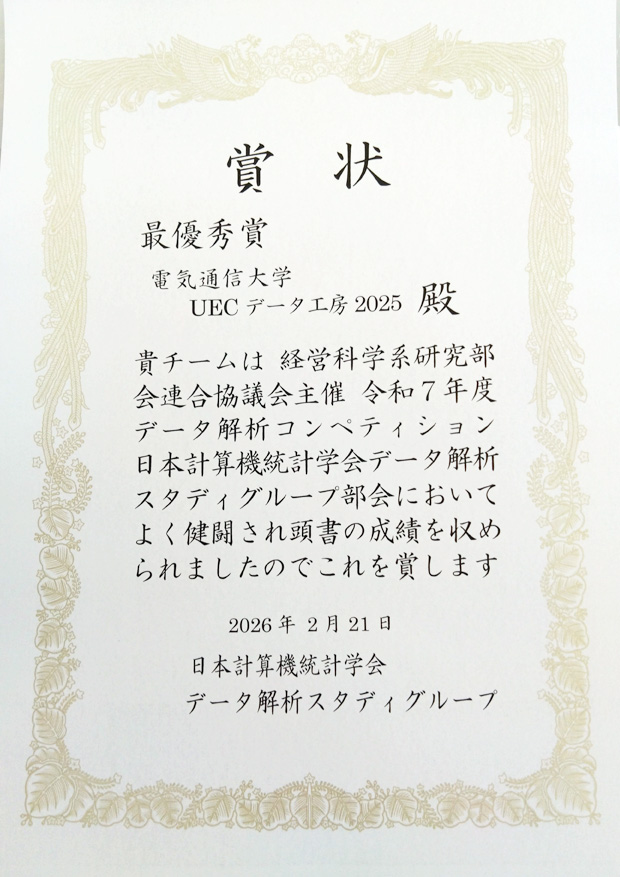 賞 状
最優秀賞
電気通信大学
UEC データ工房 2025 殿
貴チームは 経営科学系研究部
会連合協議会主催 令和7年度
データ解析コンペティション
日本計算機統計学会データ解析
スタディグループ部会において
よく健闘され頭書の成績を収め
られましたのでこれを賞します
2026 年 2 月 21 日
日本計算機統計学会
データ解析スタディグループ